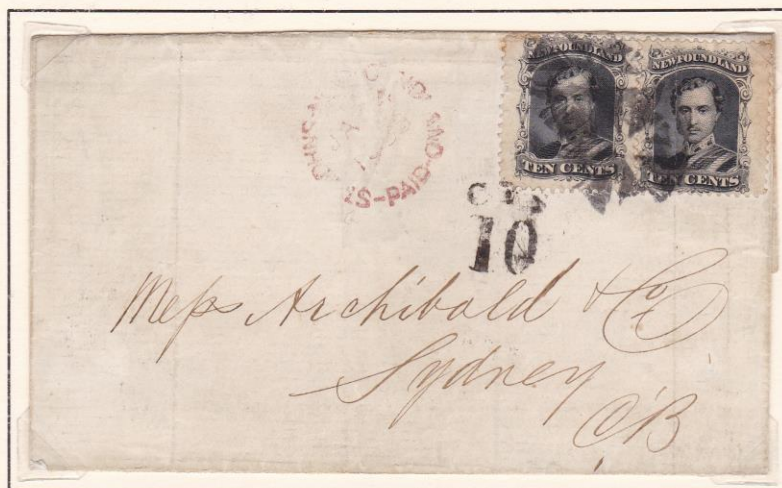 NEWFOUNDLAND
TEN CENTS
NEWFOUNDLAND
TEN CENTS
PAID
10
Mess Archibald & Co
Sydney
CB